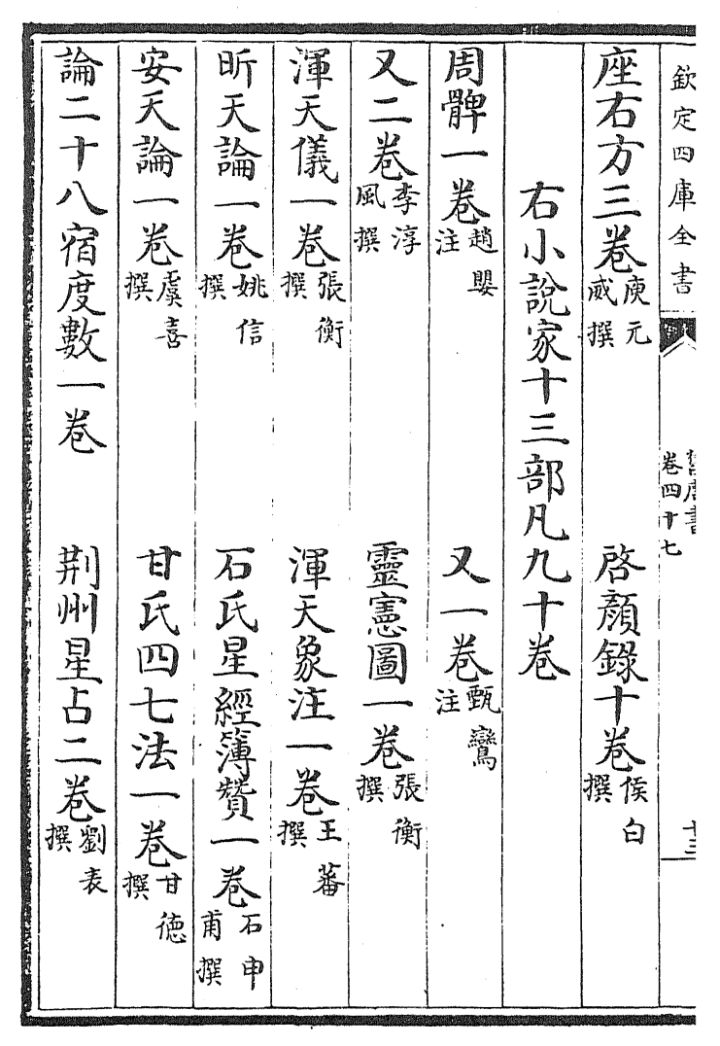 欽定四庫全書
舊唐書
卷四十七
十三
座右方三卷庾元威撰 啓顔錄十卷侯白撰
右小說家十三部凡九十卷
周髀一卷趙嬰注 又一卷甄鸞注
又二卷李淳風撰 靈憲圖一卷張衡撰
渾天儀一卷張衡撰 渾天象注一卷王蕃撰
昕天論一卷姚信撰 石氏星經簿贊一卷石申甫撰
安天論一卷虞喜撰 甘氏四七法一卷甘德撰
論二十八宿度數一卷 荆州星占二卷劉表撰